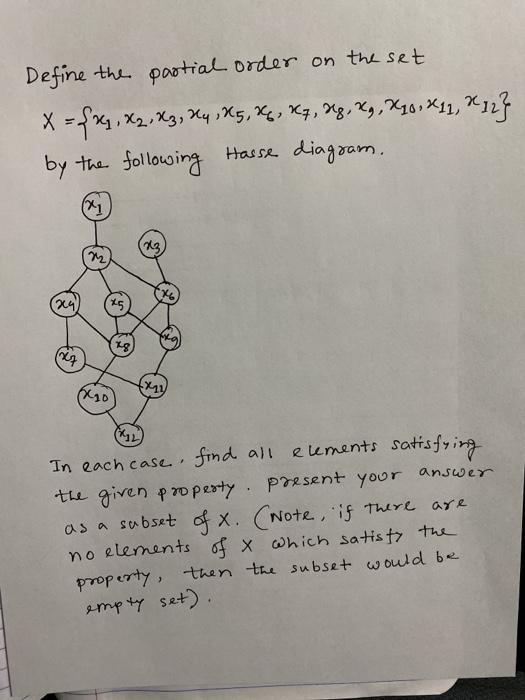 Define the partial order on the set
X = {x1, x2, x3, x4, x5, x6, x7, x8, x9, x10, x11, x12}
by the following Hasse diagram.
x1
x3
x2
x4
x5
x6
x8
x9
x7
x10
x11
x12
In each case, find all elements satisfying
the given property. present your answer
as a subset of X. (Note, if there are
no elements of X which satisfy the
property, then the subset would be
empty set).